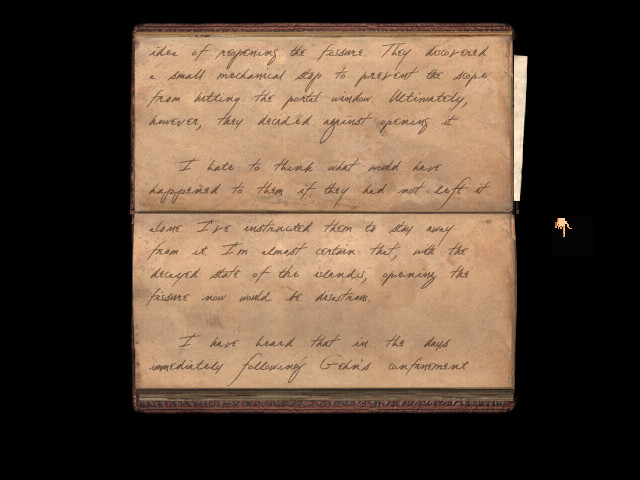 idea of reopening the fissure. They discovered
a small mechanical stop to prevent the scope
from hitting the portal window. Ultimately,
however, they decided against opening it.
I hate to think what would have
happened to them if they had not left it
alone I've instructed them to stay away
from it. I'm almost certain that, with the
decayed state of the islands, opening the
fissure now would be disastrous.
I have heard that in the days
immediately following Gehn's confinement